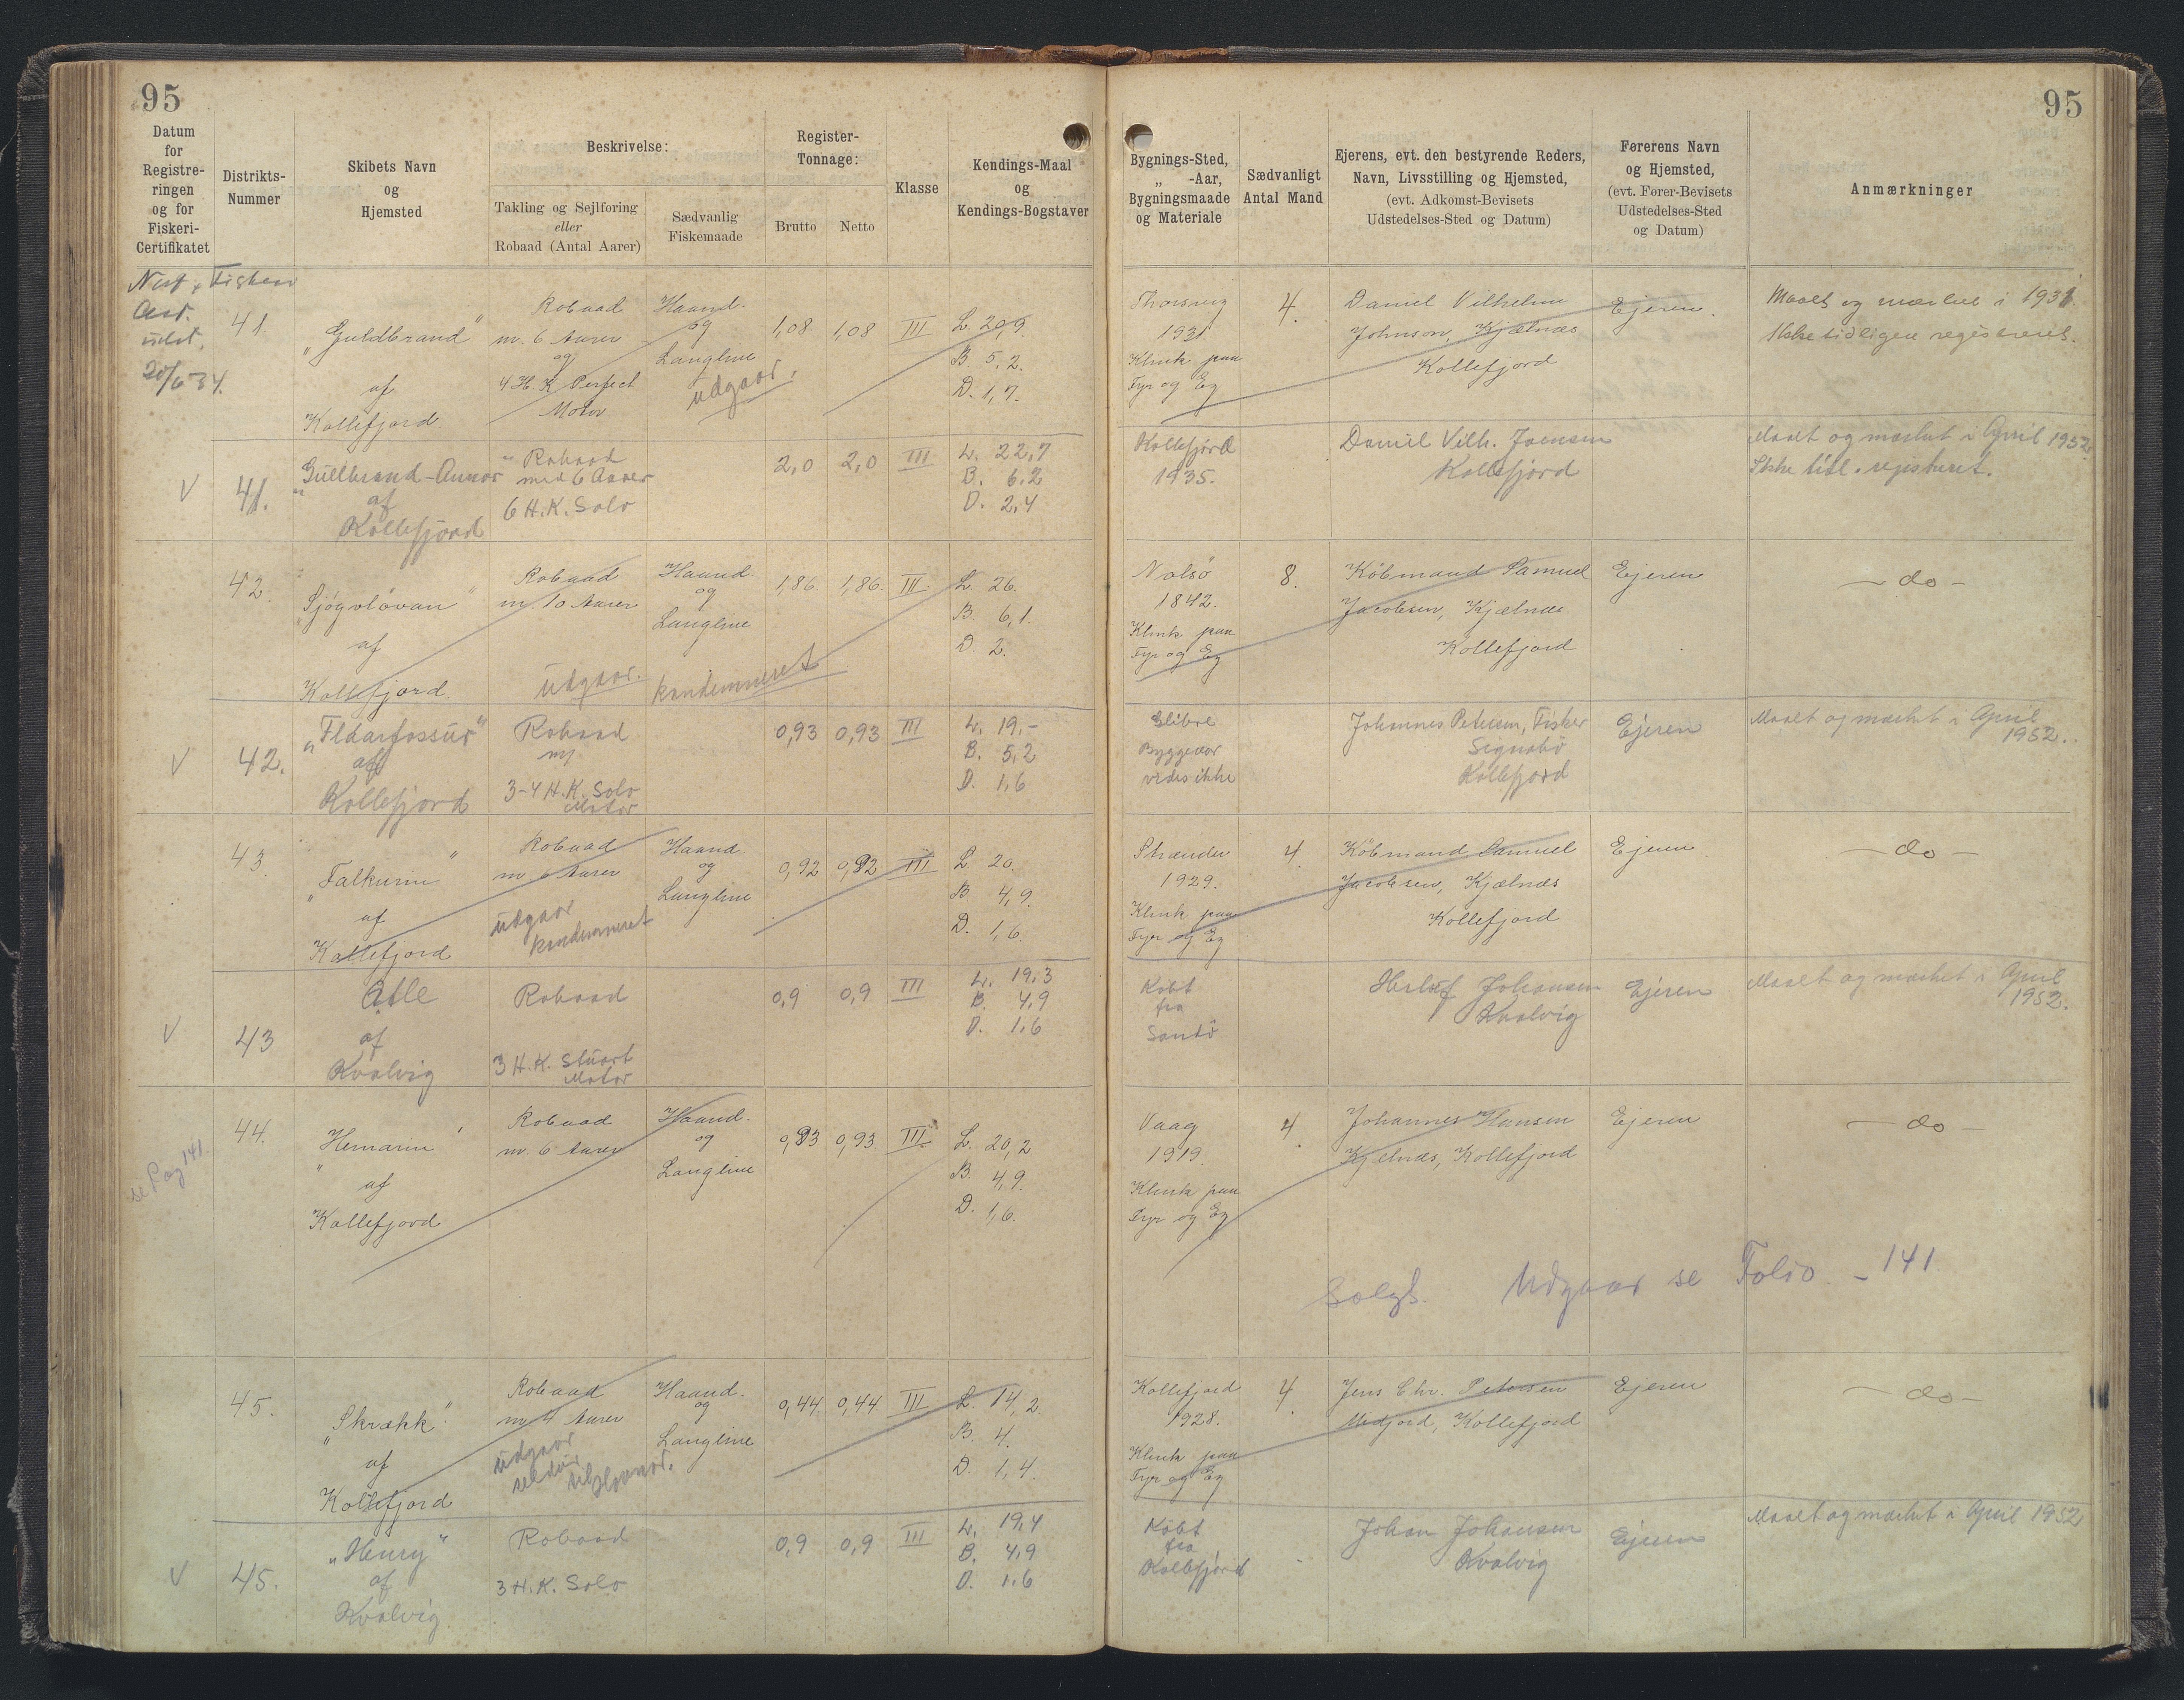 95
95
Datum
for
Registre-
ringen
og for
Fiskeri-
Certifikatet
Distrikts-
Nummer
Skibets Navn
og
Hjemsted
Beskrivelse:
Takling og Sejlføring
eller
Robaad (Antal Aarer)
Sædvanlig
Fiskemaade
Register-
Tonnage:
Brutto
Netto
Klasse
Kendings-Maal
og
Kendings-Bogstaver
Bygnings-Sted,
„ -Aar,
Bygningsmaade
og Materiale
Sædvanligt
Antal Mand
Ejerens, evt. den bestyrende Reders,
Navn, Livsstilling og Hjemsted,
(evt. Adkomst-Bevisets
Udstedelses-Sted og Datum)
Førerens Navn
og Hjemsted,
(evt. Fører-Bevisets
Udstedelses-Sted
og Datum)
Anmærkninger
udst.
20/6-34.
41.
„Guldbrand"
af
Kollefjord
Robaad
m. 6 Aarer
og
4 H K Perfect
Motor
Haand.
og
Langline
udgaar.
1,08
1,08
III
L. 20,9
B 5,2.
D. 1,7.
Thorsvig
1931
Klink paa
Fyr og Eg
4.
Daniel Vilhelm
Johnson, Kjælnæs
Kollefjord
Ejeren.
Maalt og mærket i 1931.
Ikke tidligere registreret.
V
41.
„Gullbrand-Annar"
af
Kollefjord
Robaad
med 6 Aarer
6 H.K. Solo
2,0
2,0
III
L. 22,7
B. 6,2
D. 2,4
Kollefjord
1935.
Daniel Vilh. Joensen
Kollefjord
Maalt og mærket i April 1952
Ikke tidl. registreret.
42.
„Sjógvlövan"
af
Kollefjord.
Robaad
m 10 Aarer
Haand.
og
Langline
udgaar. kondemneret
1,86.
1,86.
III.
L. 26.
B. 6,1.
D. 2.
Nolsö
1842.
Klink paa
Fyr og Eg
8.
Köbmand Samuel
Jacobsen, Kjælnæs
Kollefjord
Ejeren
- do -
V
42.
af
Kollefjord
Robaad
m/
3-4 H.K. Solo
Motor
0,93
0,93
III
L. 19,-
B. 5,2
D. 1,6
Byggeaar
vides ikke
Johannes Petersen, Fisker
Signabö
Kollefjord
Ejeren
Maalt og mærket i April
1952.
43.
„Falkurin"
af
Kollefjord
Robaad
m 6 Aarer
udgaar
kondemneret
Haand
og
Langline
0,92
0,92
III
L. 20.
B. 4,9.
D. 1,6.
Strænder
1929.
Klink paa
Fyr og Eg
4.
Köbmand Samuel
Jacobsen, Kjælnæs
Kollefjord
Ejeren
- do -
V
43
af
Kvalvig
Robaad
3 H.K. Stuart
Motor
0,9
0,9
III
L. 19,3
B. 4,9
D. 1,6
Købt
fra
Sandö
Herluf Johansen
Kvalvig
Ejeren
Maalt og mærket i April
1952.
se Pag 141.
44.
„Hemarin"
af
Kollefjord
Robaad
m. 6 Aarer
Haand.
og
Langline
0,93
0,93
III.
L. 20,2
B. 4,9.
D. 1,6.
Vaag
1919.
Klink paa
Fyr og Eg
4.
Johannes Hansen
Kjælnæs, Kollefjord
Ejeren
- do -
Solgt. Udgaar se Folio - 141
45.
„Skrækk"
af
Kollefjord
Robaad
m 4 Aarer
udgaar
Haand.
og
Langline
0,44
0,44
III
L. 14,2.
B. 4.
D. 1,4.
Kollefjord
1928.
Klink paa
Fyr og Eg
4.
Jens Chr. Petersen
Midjord, Kollefjord
Ejeren
- do -
V
45.
„Henry"
af
Kvalvig
Robaad
3 H.K. Solo
0,9
0,9
III
L. 19,4
B. 4,9
D. 1,6
Købt
fra
Kollefjord
Johan Johansen
Kvalvig
Ejeren
Maalt og mærket i April 1952